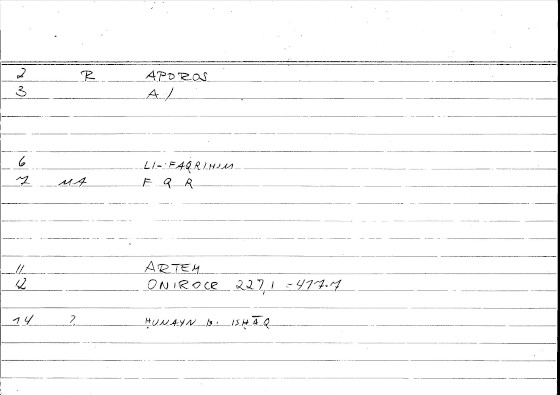 2 R APOROS
3 A/
6 LI-FAQRIHIM
7 MA F Q R
11 ARTEM
12 ONIROCR 227,1 = 477.7
14 ? ḤUNAYN B. ISḤĀQ